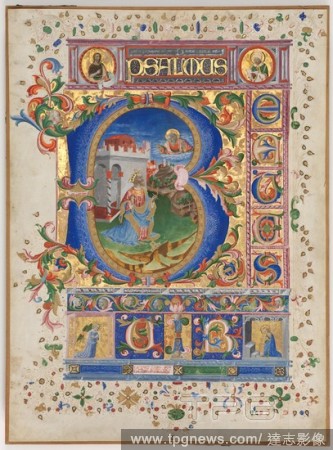 PSALMUS
B
E
A
T
U
S
VIR
www.tpgnews.com/ 達志影像